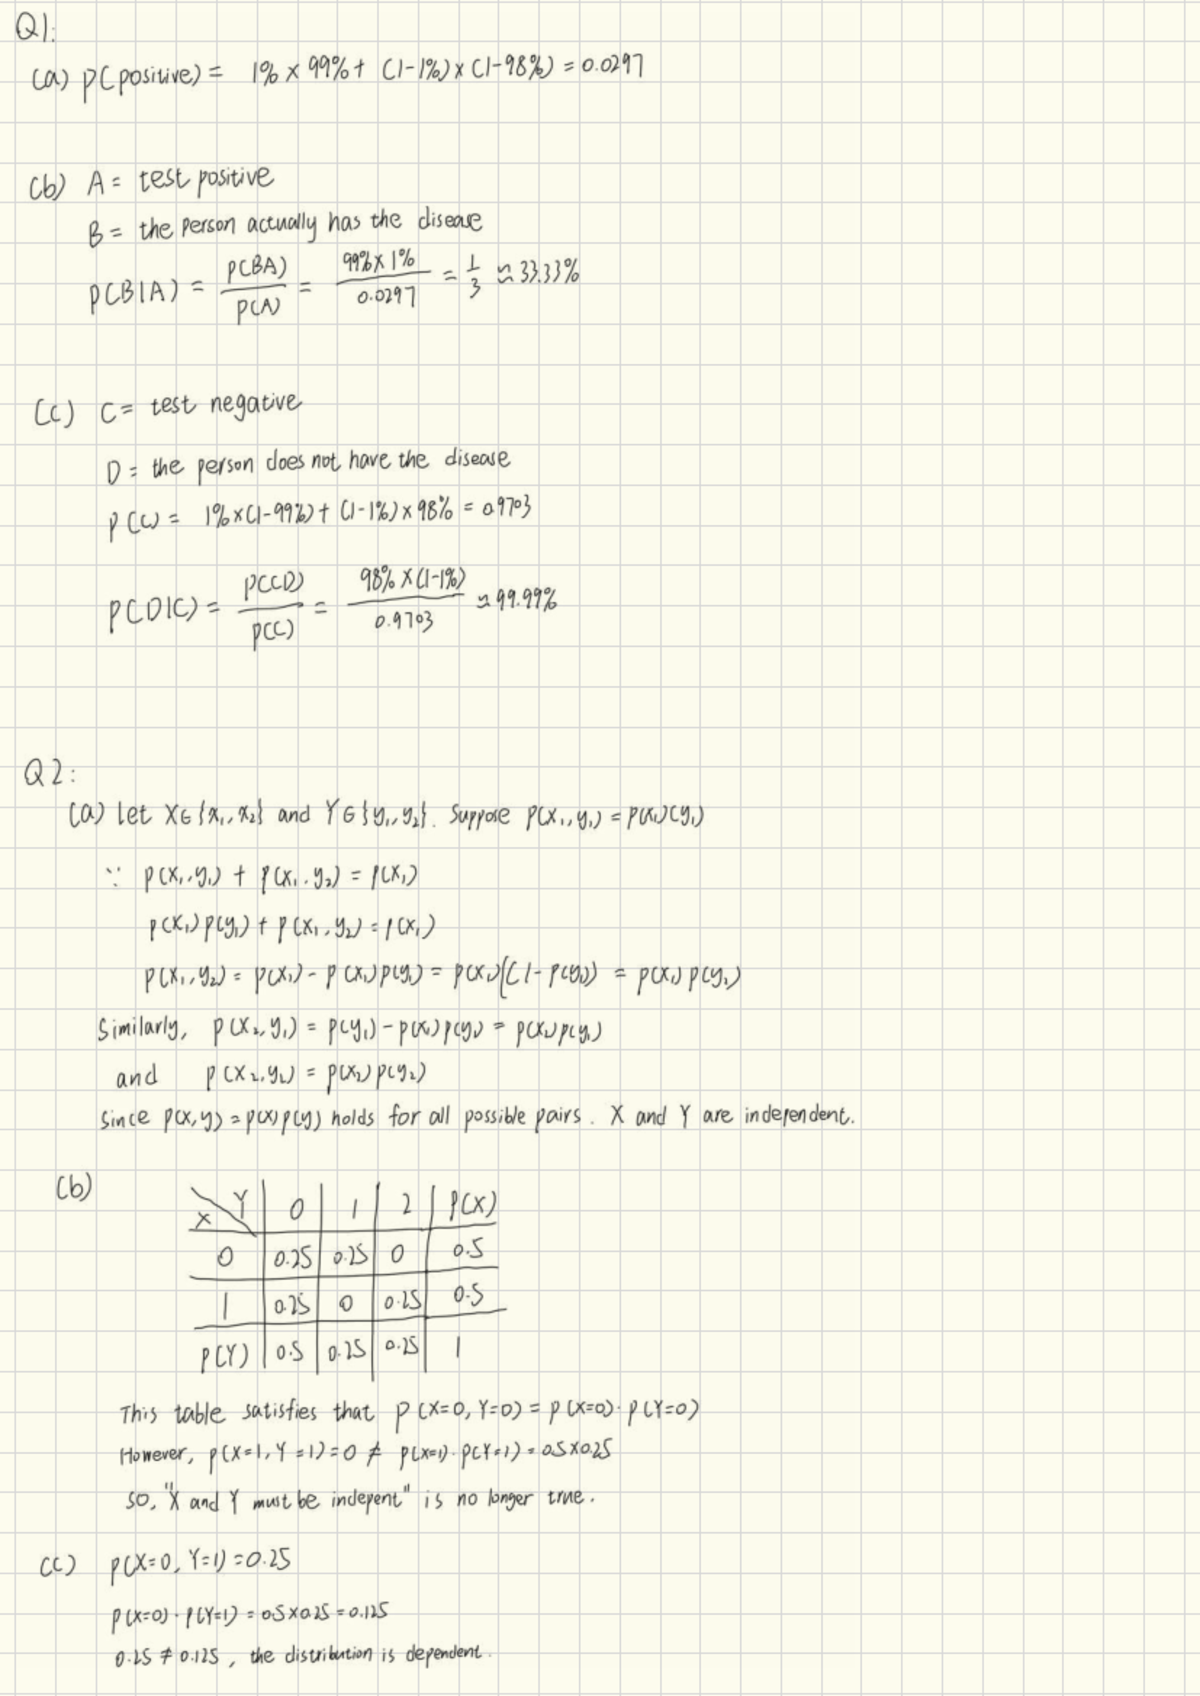 Q1:
(a) P(positive) = 1% × 99% + (1-1%) × (1-98%) = 0.0297
(b) A = test positive
B = the person actually has the disease
P(B|A) = P(BA)/P(A) = 99%×1%/0.0297 = 1/3 ≈ 33.33%
(c) C = test negative
D = the person does not have the disease
P(C) = 1%×(1-99%) + (1-1%)×98% = 0.9703
P(D|C) = P(CD)/P(C) = 98%×(1-1%)/0.9703 ≈ 99.99%
Q2:
(a) let X∈{x₁,x₂} and Y∈{y₁,y₂}. Suppose P(x₁,y₁) = P(x₁)(y₁)
∵ P(x₁,y₁) + P(x₁,y₂) = P(x₁)
P(x₁)P(y₁) + P(x₁,y₂) = P(x₁)
P(x₁,y₂) = P(x₁) - P(x₁)P(y₁) = P(x₁)(1-P(y₁)) = P(x₁)P(y₂)
Similarly, P(x₂,y₁) = P(y₁) - P(x₁)P(y₁) = P(x₂)P(y₁)
and P(x₂,y₂) = P(x₂)P(y₂)
Since P(x,y) = P(x)P(y) holds for all possible pairs. X and Y are independent.
(b)
X Y 0 1 2 P(X)
0 0.25 0.25 0 0.5
1 0.25 0 0.25 0.5
P(Y) 0.5 0.25 0.25 1
This table satisfies that P(X=0, Y=0) = P(X=0)·P(Y=0)
However, P(X=1, Y=1) = 0 ≠ P(X=1)·P(Y=1) = 0.5×0.25
so, "X and Y must be indepent" is no longer true.
(c) P(X=0, Y=1) = 0.25
P(X=0)·P(Y=1) = 0.5×0.25 = 0.125
0.25 ≠ 0.125, the distribution is dependent.